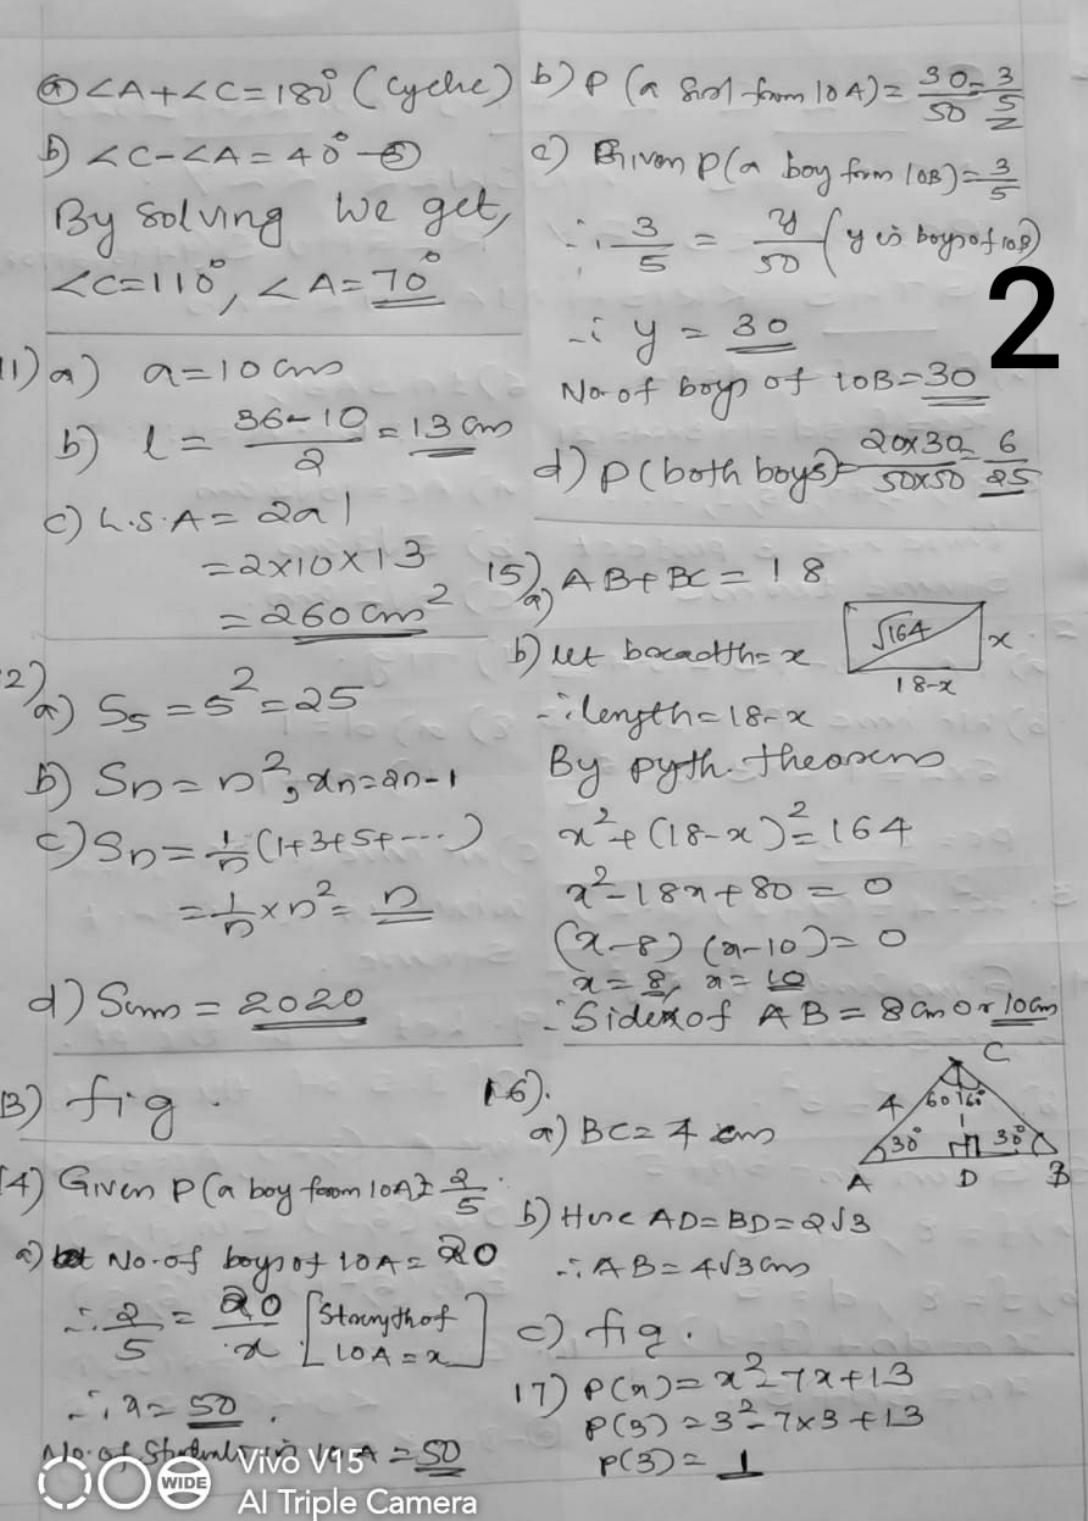 a) ∠A+∠C=180° (Cyclic)
b) ∠C-∠A=40°
By Solving we get,
∠C=110°, ∠A=70°
11) a) a=10cms
b) l = 36-10/2 = 13cms
c) L.S.A = 2al
=2×10×13
=260cms²
12) a) S₅ = 5² = 25
b) Sn = n², xn=2n-1
c) Sn = 1/n (1+3+5+---)
= 1/n × n² = n
d) Sum = 2020
13) fig.
14) Given P(a boy from 10A) = 2/5
a) let No. of boys of 10A = 20
∴ 2/5 = 20/x [Strength of 10A = x]
∴ x = 50.
No. of Students in 10A = 50
b) P (a Girl from 10A) = 30/50 = 3/5
c) Given P(a boy from 10B) = 3/5
∴ 3/5 = y/50 (y is boys of 10B)
∴ y = 30
No. of boys of 10B = 30
d) P(both boys) = 20×30/50×50 = 6/25
15) a) AB+BC = 18
√164
x
18-x
b) let breadth = x
∴ length = 18-x
By pyth. theorem
x²+(18-x)²=164
x²-18x+80 = 0
(x-8) (x-10) = 0
x = 8, x = 10
∴ Side of AB = 8cm or 10cm
16).
C
4 60° 60°
30° 30°
A D B
a) BC = 4 cms
b) Here AD=BD=2√3
∴ AB = 4√3cms
c) fig.
17) P(x) = x²-7x+13
P(3) = 3²-7×3+13
P(3) = 1
2
WIDE
Vivo V15
AI Triple Camera